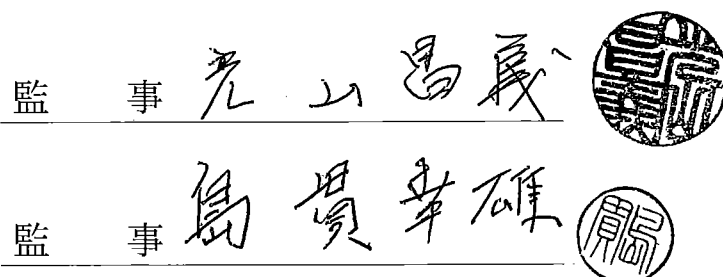 監 事 光山昌義
監 事 島貫幸雄